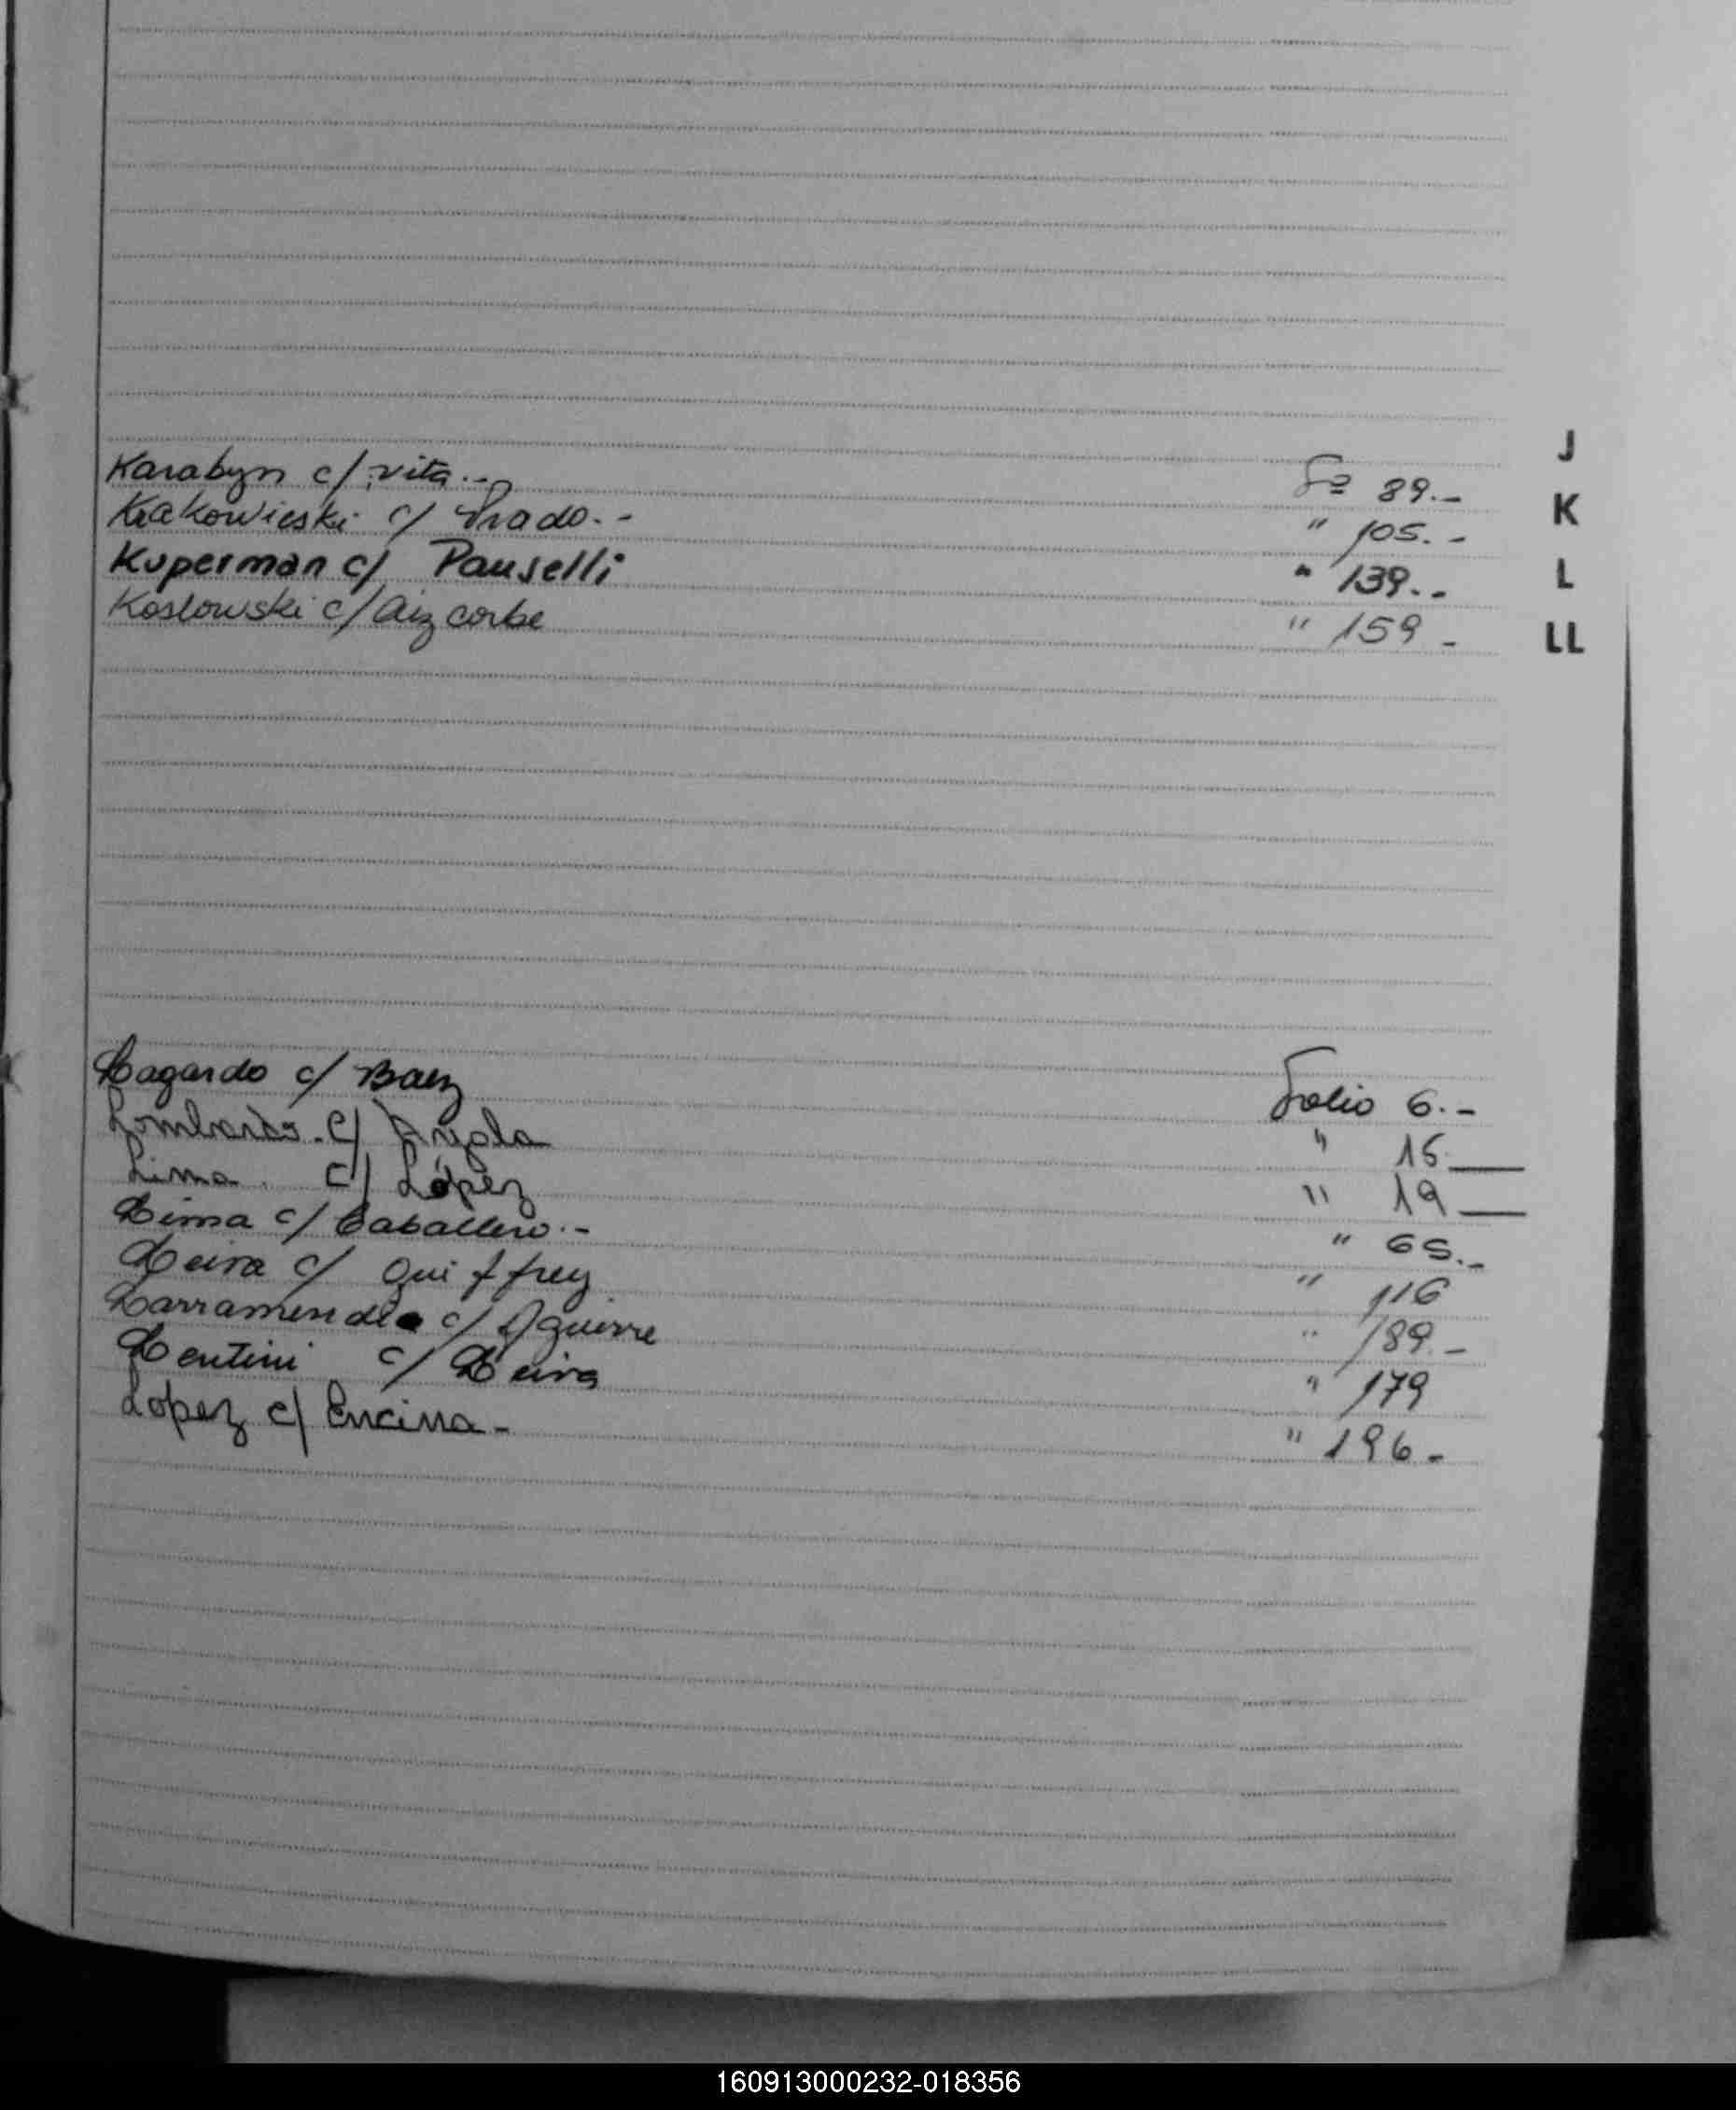 J
K
L
LL
Karabyn c/ vita.- Fº 89.-
Krakowieski c/ Prado.- " 105.-
Kuperman c/ Pauselli " 139.-
Koslowski c/ Aizcorbe " 159-
Lagardo c/ Baez Folio 6.-
Lombardo. c/ Argola " 15
Lima. c/ López " 19
Lima c/ Caballero.- " 65.-
Leira c/ Quiffrey " 116
Larramendia c/ Aguirre " 189.-
Lentini c/ Leira " 179
Lopez c/ Encina- " 196.-
160913000232-018356